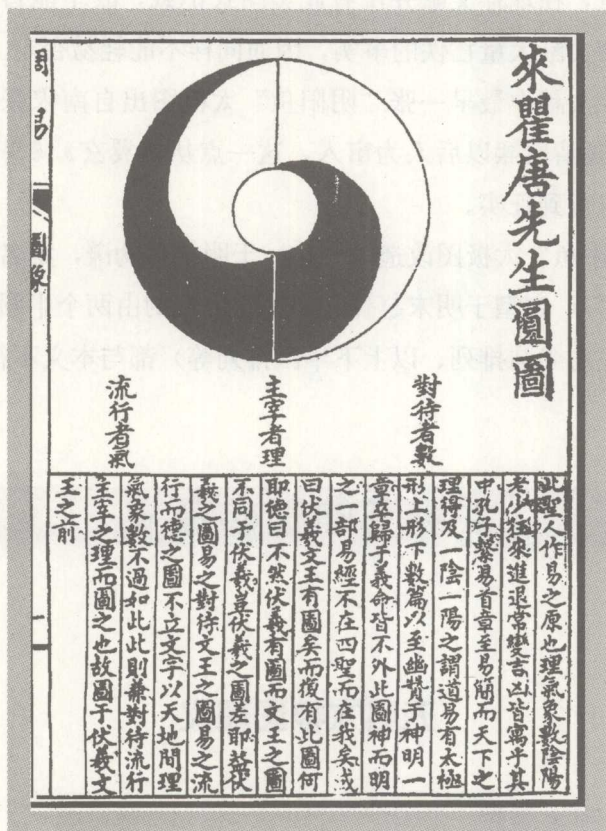 來瞿唐先生圓圖
對待者數
主宰者理
流行者氣
此聖人作易之原也理氣象數陰陽
老少往來進退常變吉凶皆寓乎其
中孔子繫易首章至易簡而天下之
理得及一陰一陽之謂道易有太極
形上形下數篇以至幽贊于神明一
章卒歸于義命皆不外此圖神而明
之一部易經不在四聖而在我矣或
曰伏羲文王有圖矣而復有此圖何
耶德曰不然伏羲有圖而文王之圖
不同于伏羲豈伏羲之圖差耶蓋伏
羲之圖易之對待文王之圖易之流
行而德之圖不立文字以天地間理
氣象數不過如此此則兼對待流行
主宰之理而圖之也故圖于伏羲文
王之前
周易
圖像